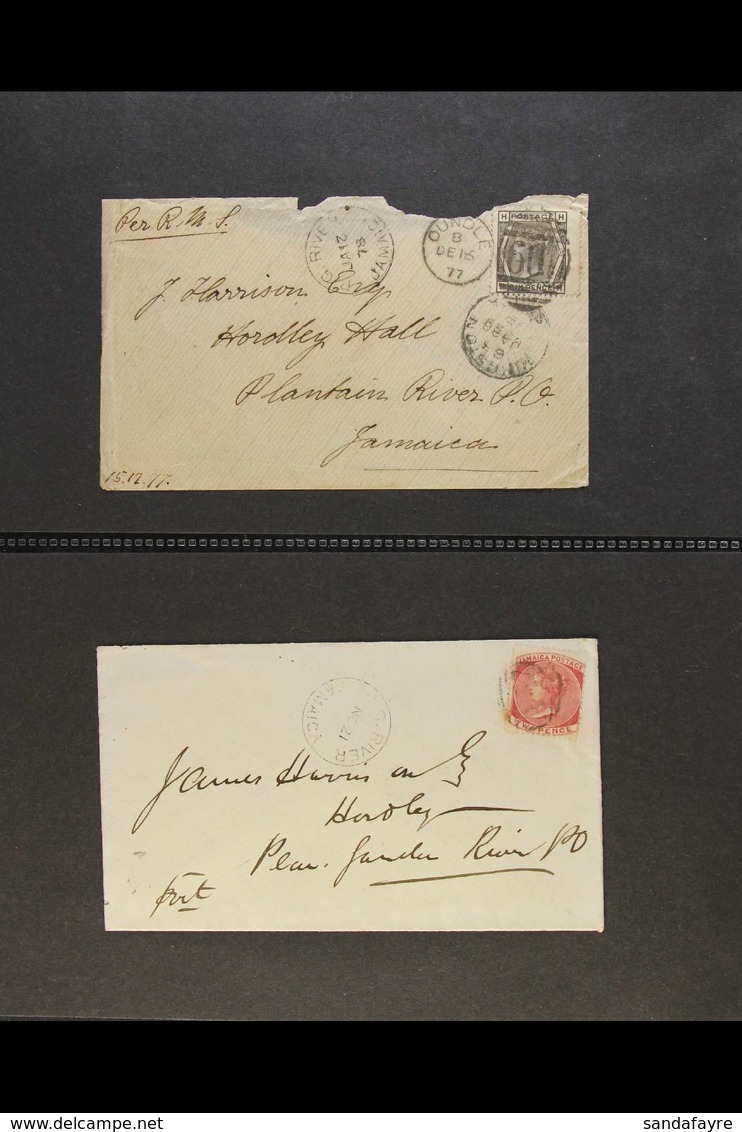 Per R.M.S.
P.G. RIVER
JA 12
78
JAMAICA
OUNDLE
B
DE 15
77
H POSTAGE H
601
J. Harrison Esq
Hordley Hall
Plantain River P.O.
Jamaica
15.12.77.
JAMAICA POSTAGE
TWO PENCE
RIVER
NO 21
JAMAICA
James Harrison Esq
Hordley
Plan. Garden River PO
delcampe.net
sandafayre